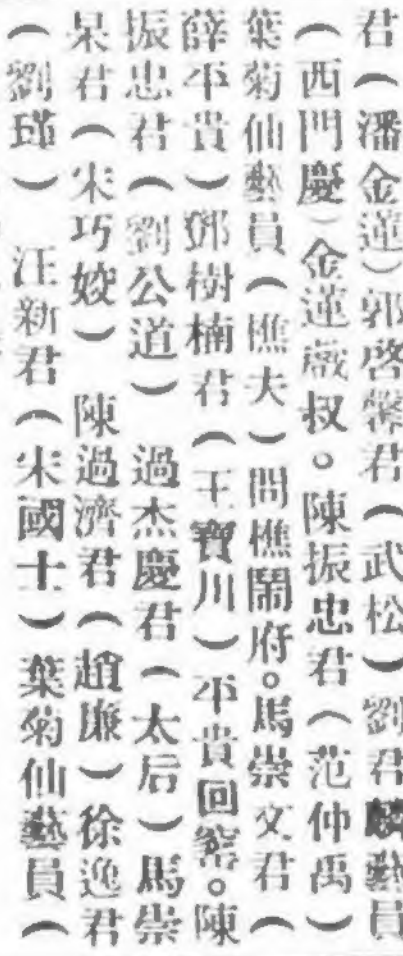 君（潘金蓮）郭啓馨君（武松）劉君麟藝員
（西門慶）金蓮戲叔。陳振忠君（范仲禹）
葉菊仙藝員（樵夫）問樵鬧府。馬崇文君（
薛平貴）鄧樹楠君（王寶川）平貴回窰。陳
振忠君（劉公道）過杰慶君（太后）馬崇
杲君（宋巧姣）陳過濟君（趙廉）徐逸君
（劉瑾）汪新君（宋國士）葉菊仙藝員（